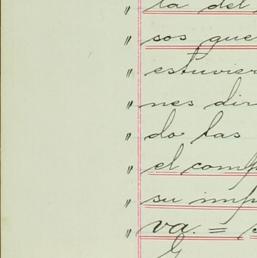 " la del
" sos que
" estuvier
" nes dir
" do las
" el comp
" su imp
" va. =